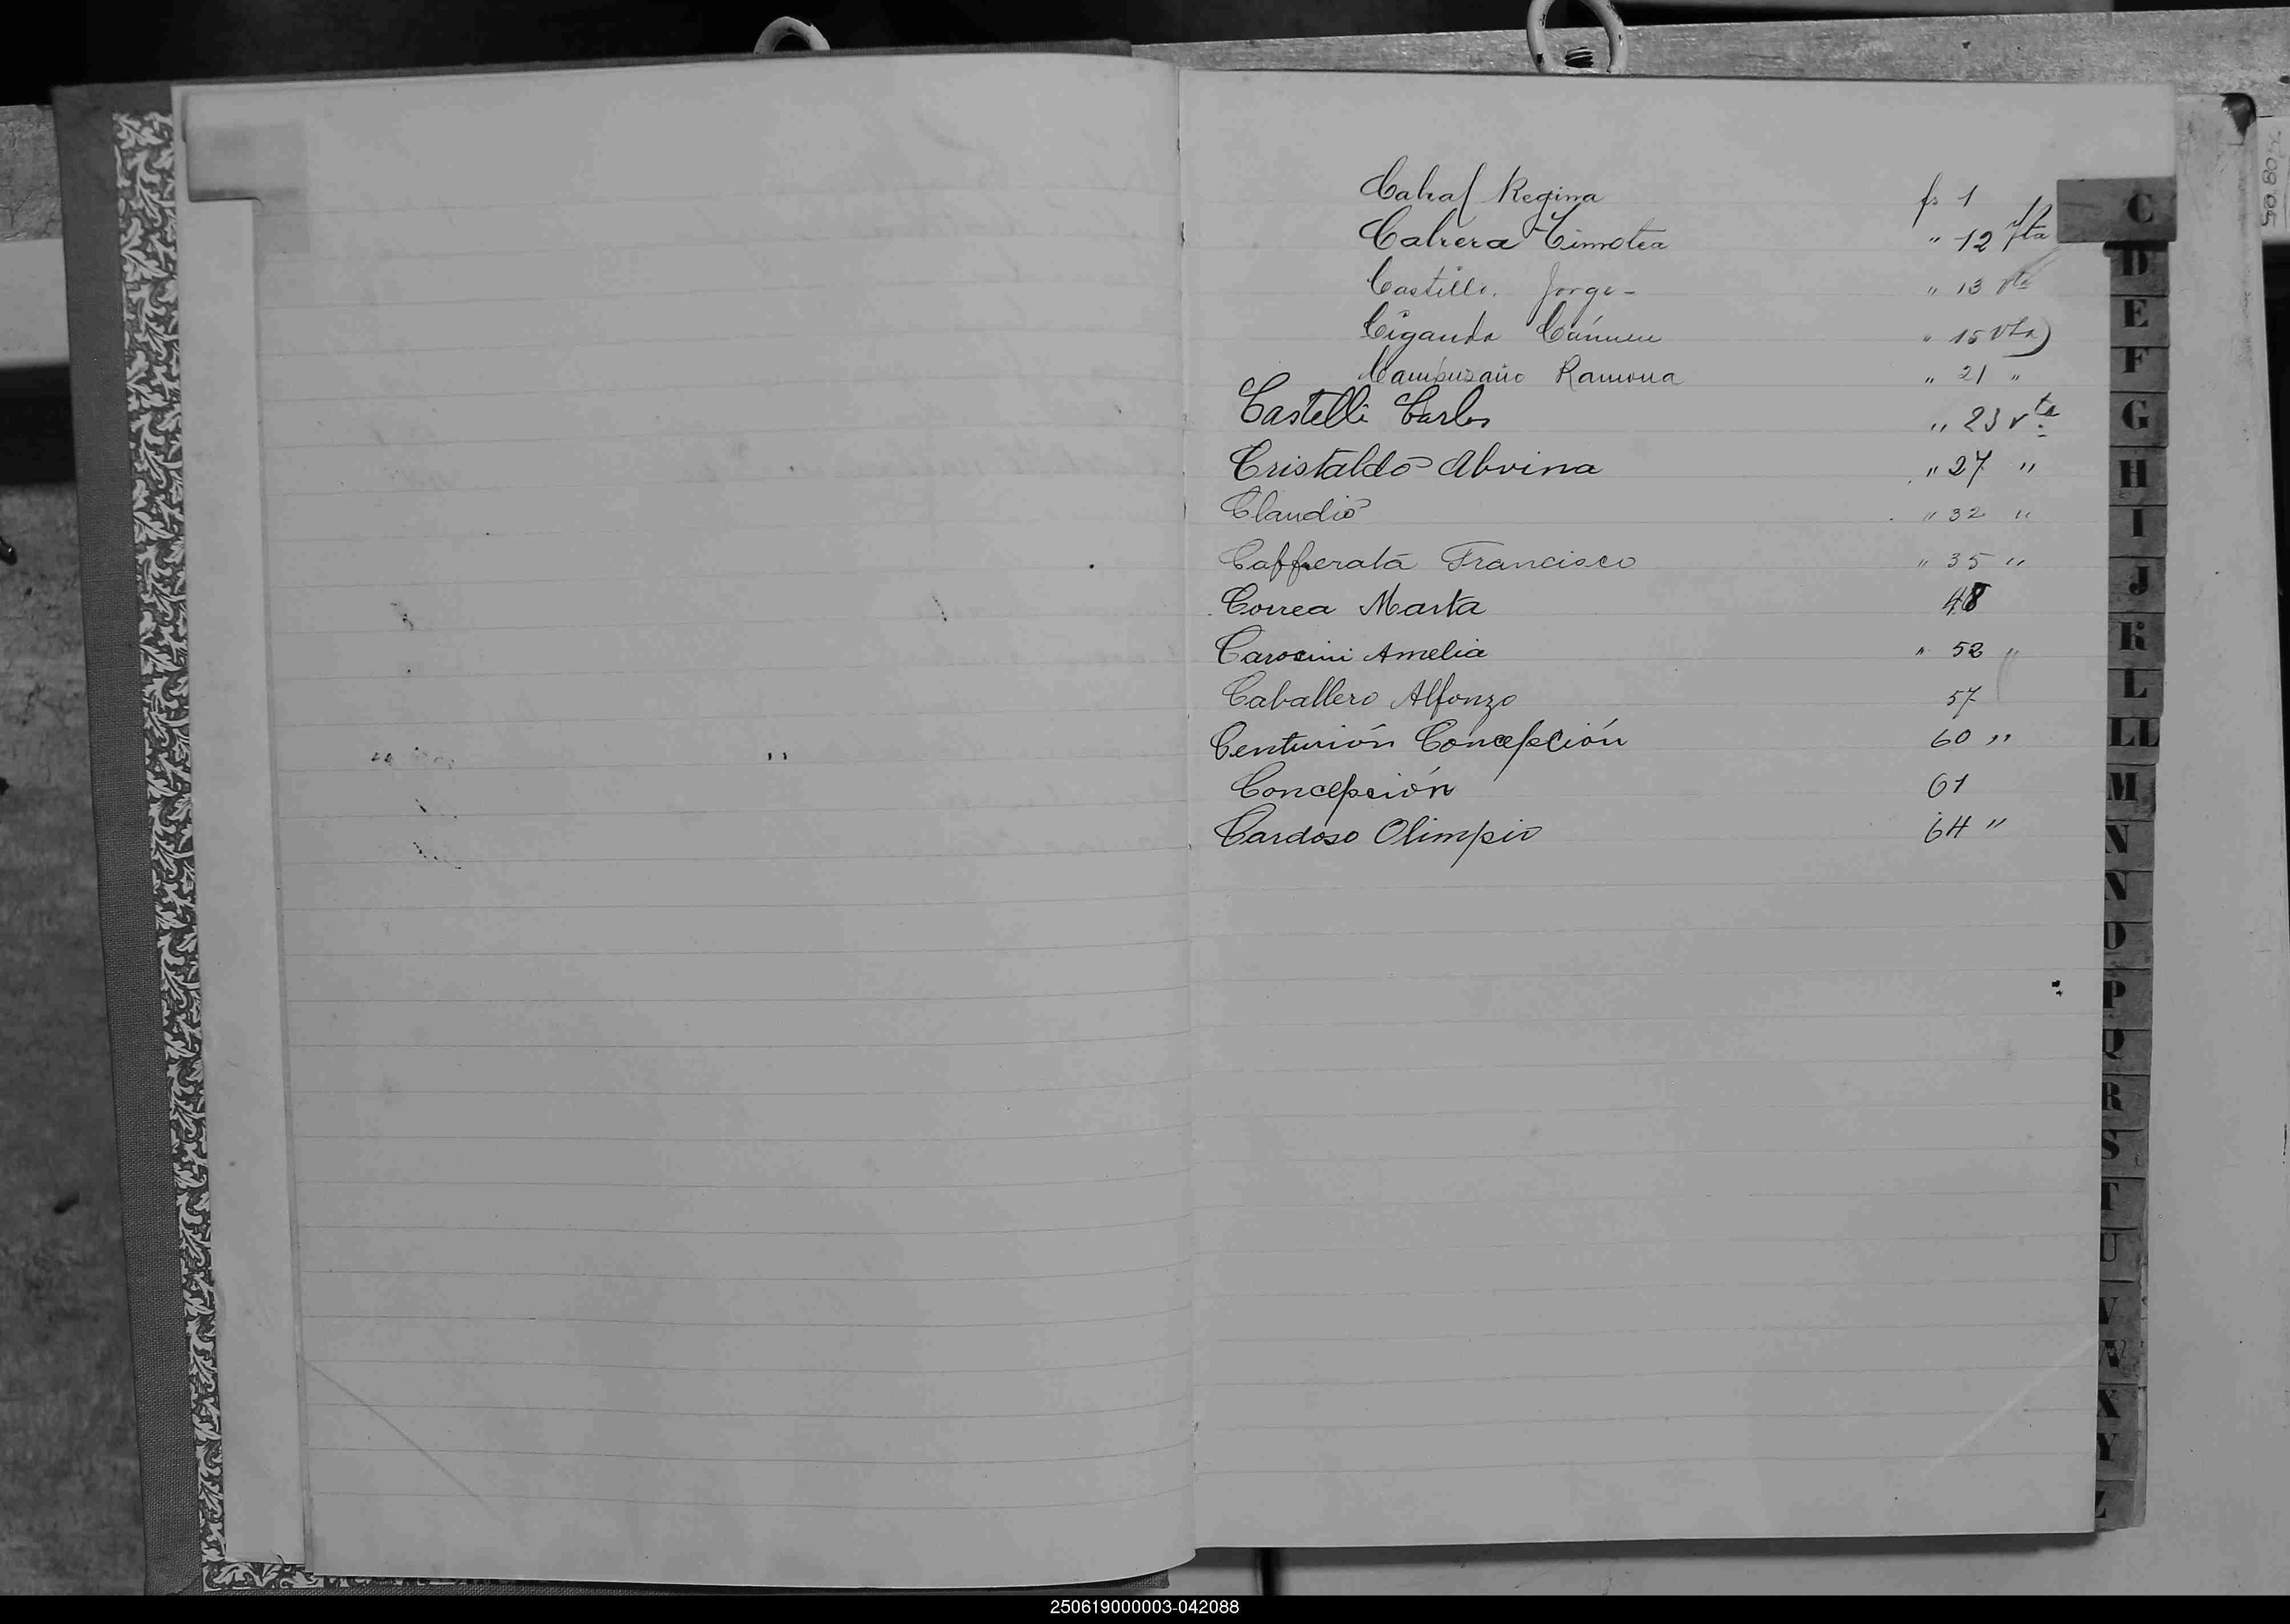 Cabral Regina fs 1
Cabrera Timotea " 12 vta
Castillo. Jorge - " 13 vta
Ciganda Cármen " 15 vta
Campuzano Ramona " 21 "
Castelli Carlos " 23 vta
Cristaldo Alvina " 27 "
Claudio " 32 "
Cafferata Francisco " 35 "
Correa Marta 48
Carosini Amelia " 52 "
Caballero Alfonzo 57
Centurión Concepción 60 "
Concepción 61
Cardoso Olimpio 64 "
C
D
E
F
G
H
I
J
K
L
LL
M
N
N
O
P
Q
R
S
T
U
V
W
X
Y
Z
250619000003-042088